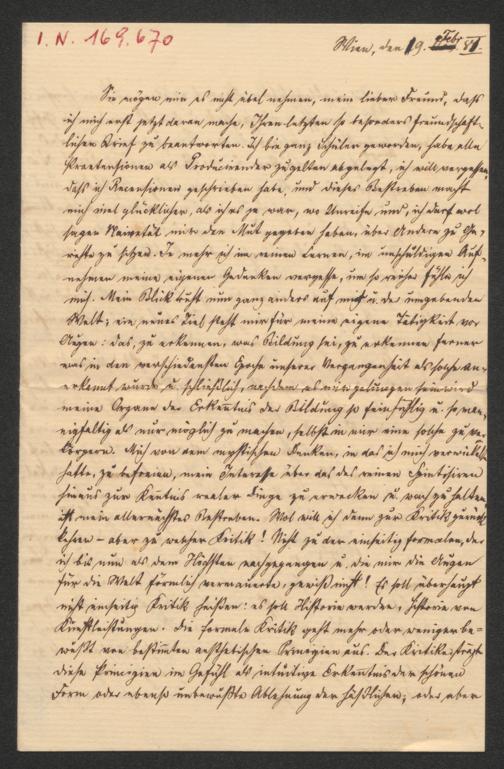 I. N. 169.670
Wien, den 19. Febr. 81.
Sie mögen mir es nicht übel nehmen, mein lieber Freund, dass
ich mich erst jetzt daran mache, Ihren letzten so besonders freundschaft-
lichen Brief zu beantworten. Ich bin ganz Schüler geworden, habe alle
Praetensionen als Producirender zu gelten abgelegt, ich will vergessen,
daß ich Recensionen geschrieben habe, und dieses Bestreben macht
mich viel glücklicher, als ich es je war, wo Unreife und, ich darf wol
sagen Naivetät mir den Mut gegeben haben, über Andere zu Ge-
richte zu sitzen. Je mehr ich im reinen Lernen, im unschuldigen Auf-
nehmen meine eigenen Gedanken vergesse, um so reicher fühle ich
mich. Mein Blick trifft nun ganz anders auf mich u. die umgebende
Welt; ein neues Ziel steht mir für meine eigene Tätigkeit vor
Augen: das, zu erkennen, was Bildung sei, zu erkennen ferner
was in den verschiedensten Epochen unserer Vergangenheit als solche an-
erkannt wurde u. schließlich, nachdem es mir gelungen sein wird
meine Organe der Erkenntnis der Bildung so feinfühlig u. so man-
nigfaltig als nur möglich zu machen, selbst in mir eine solche zu ver-
körpern. Mich von dem mystischen Denken, in das ich mich verwickelt
hatte, zu befreien, mein Interesse über das des reinen
hinaus zur Kentnis realer Dinge zu erwecken u. wach zu halten
ist mein allernächstes Bestreben. Wol will ich dann zur Kritik zurück
kehren – aber zu welcher Kritik! Nicht zu der einseitig formalen, der
ich bis nun als dem Höchsten nachgegangen u. die mir die Augen
für die Welt förmlich vermauerte, gewiß nicht! Es soll überhaupt
nicht einseitig Kritik heißen: es soll Historie werden, Historie von
Kunstleistungen. Die formale Kritik geht mehr oder weniger be-
wußt von bestimten aesthetischen Prinzipien aus. Der Kritiker trägt
diese Prinzipien im Gefühl als intuitive Erkenntnis der schönen
Form oder ebenso unbewußte Ablehnung der häßlichen; oder aber